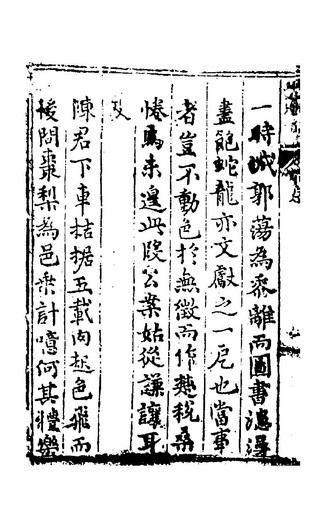 一時城郭蕩為黍離而圖書漶漫
盡飽蛇龍亦文獻之一厄也當事
者豈不動色於無徵而作
惓焉未遑此段公案姑從謙讓耳
陳君下車拮据五載肉起色飛而
後問棗梨為邑乘計噫何其禮樂